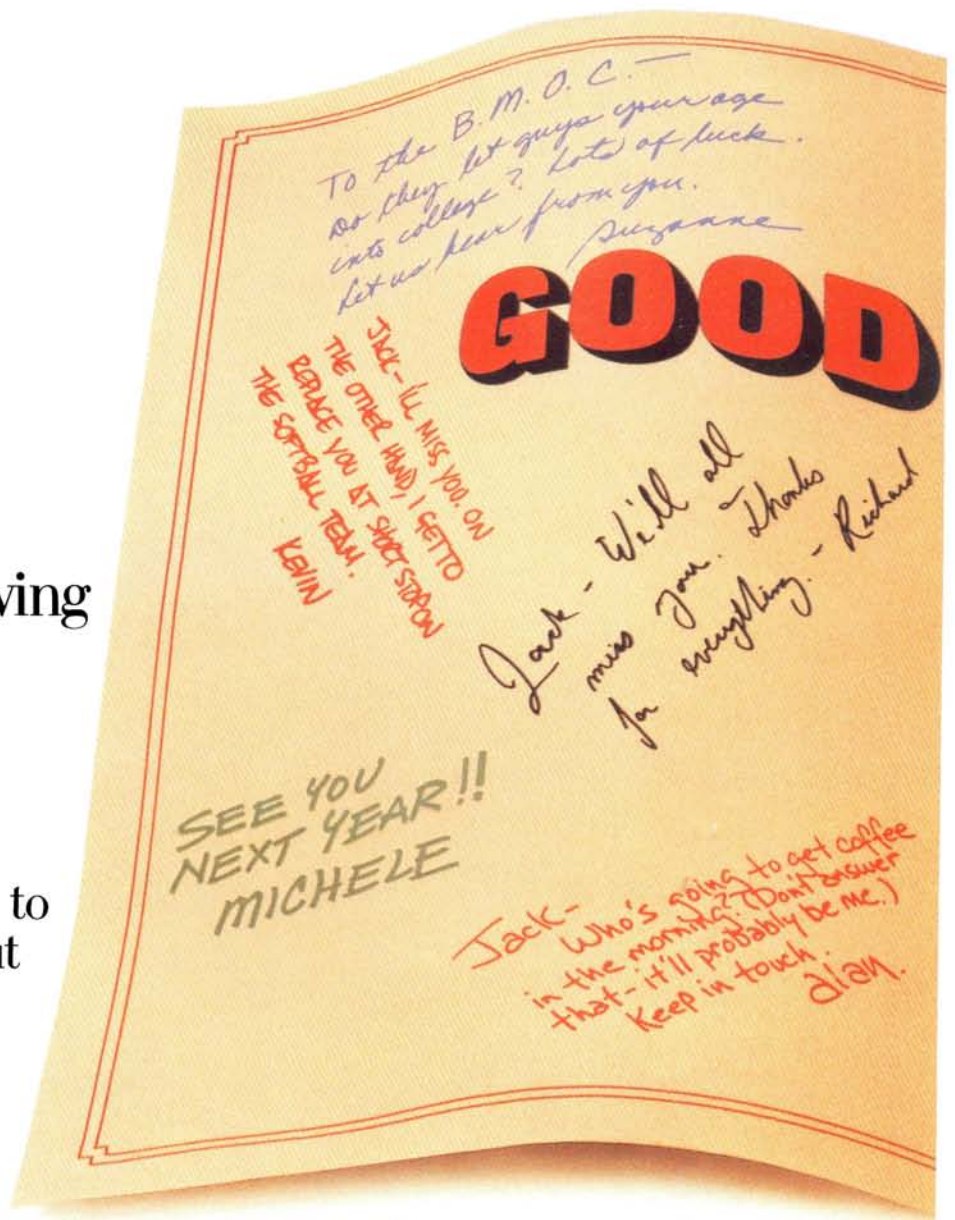 To the B.M.O.C.—
Do they let guys your age
into college? Lots of luck.
Let us hear from you.
Suzanne
GOOD
JACK - I'LL MISS YOU. ON
THE OTHER HAND, I GET TO
REPLACE YOU AT SHORT STOP ON
THE SOFTBALL TEAM.
KEVIN
Jack - We'll all
miss you. Thanks
for everything. - Richard
SEE YOU
NEXT YEAR!!
MICHELE
Jack-
Who's going to get coffee
in the morning? (Don't answer
that - it'll probably be me.)
Keep in touch.
Alan.
to